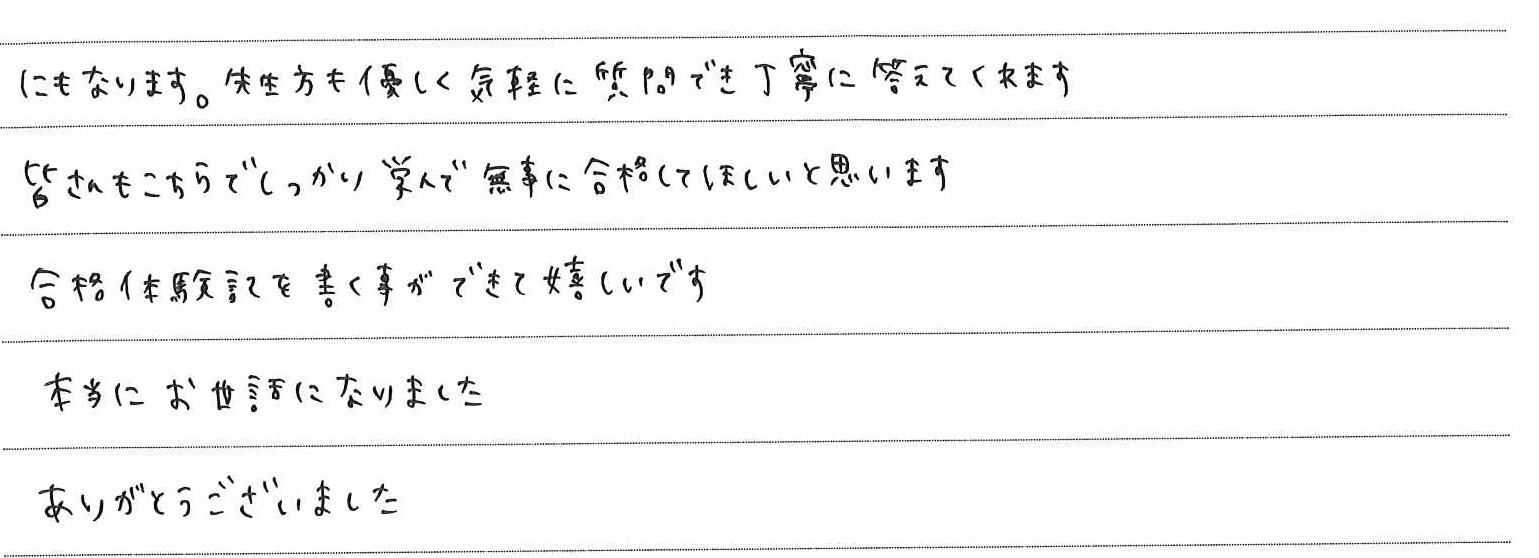 にもなります。先生方も優しく気軽に質問でき丁寧に答えてくれます
皆さんもこちらでしっかり学んで無事に合格してほしいと思います
合格体験記を書く事ができて嬉しいです
本当にお世話になりました
ありがとうございました